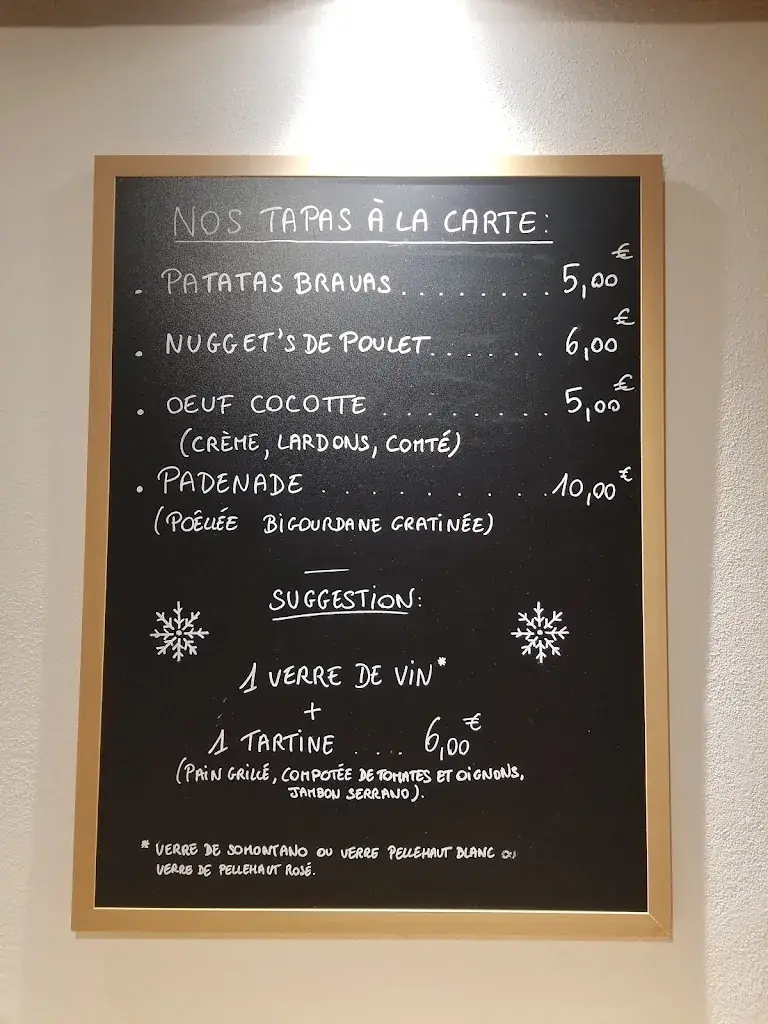 NOS TAPAS À LA CARTE:
. PATATAS BRAVAS ........ 5,00€
. NUGGET'S DE POULET...... 6,00€
. OEUF COCOTTE ......... 5,00€
(CRÈME, LARDONS, COMTÉ)
. PADENADE ......... 10,00€
(POÊLÉE BIGOURDANE GRATINÉE)
SUGGESTION:
1 VERRE DE VIN*
+
1 TARTINE ..... 6,00€
(PAIN GRILLÉ, COMPOTÉE DE TOMATES ET OIGNONS,
JAMBON SERRANO).
* VERRE DE SOMONTANO OU VERRE PELLEHAUT BLANC OU
VERRE DE PELLEHAUT ROSÉ.